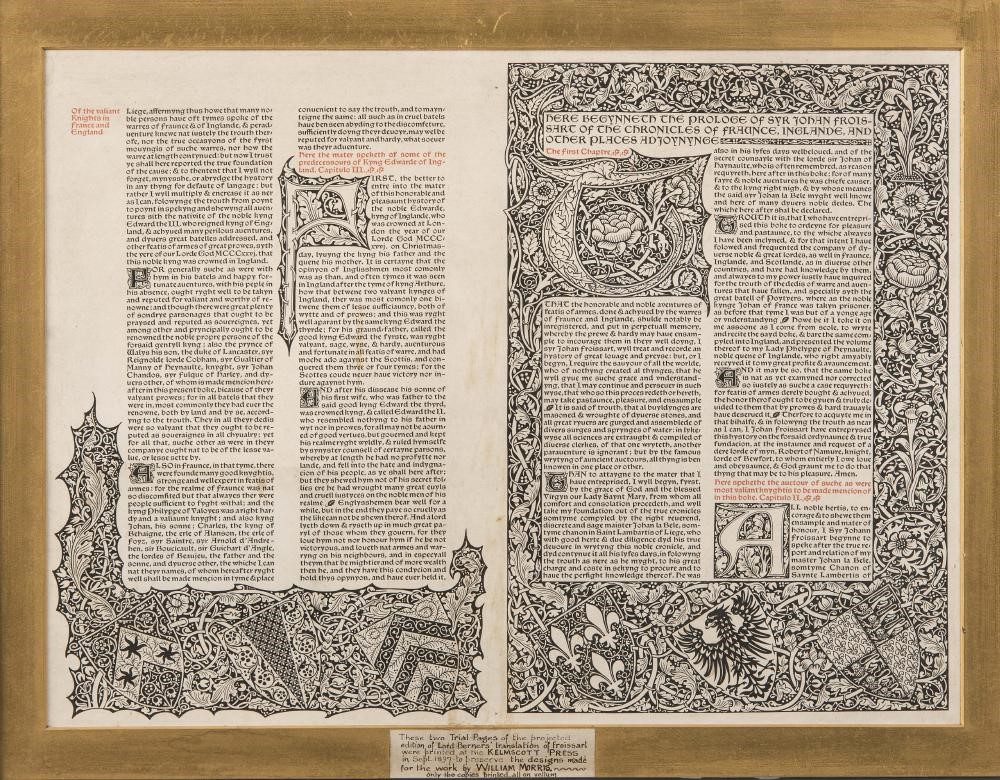 Of the valiant
Knights in
France and
England
Liege, affermyng thus howe that many no/
ble persons haue oft tymes spoke of the
warres of Fraunce & of Inglande, & perad/
uenture knewe nat iustely the trouth ther/
ofe, nor the true occasyons of the fyrst
mouyngis of suche warres, nor how the
warre at length contynued: but now I trust
ye shall reported the true foundation
of the cause: & to thentent that I wyll not
forget, mynysshe, or abrydge the hystory
in any thyng for defaute of langage: but
rather I wyll multiply & encrease it as ner
as I can, folowynge the trouth from poynt
to poynt in spekyng and shewyng all auen/
tures sith the nativite of the noble kyng
Edward the III. who reigned kyng of Eng/
land, & achyued many perilous auentures,
and dyuers great batelles addressed, and
other featis of armes of great proves, syth
the yere of our Lorde God MCCCxxvj. that
this noble kyng was crowned in England.
FOR generally suche as were with
hym in his batels and happy for/
tunate auentures, with his peple in
his absence, ought ryght well to be takyn
and reputed for valyant and worthy of re/
nowne: and though there were great plenty
of sondrye parsonages that ought to be
prayzed and reputed as soureignes, yet
among other and pryncipally ought to be
renowned the noble propre persone of the
forsaid gentyll kyng: also the prynce of
Walys his son, the duke of Lancaster, syr
Reignolde lorde Cobham, syr Gualtier of
Manny of Heynaulte, knyght, syr Johan
Chandos, syr Fulque of Harley, and dy/
uers other, of whom is made mencion here/
after in this present boke, because of they
valyant prowes; for in all batels that they
were in, most commonly they had euer the
renowne, both by land and by se, accord/
yng to the trouth. They in all they dedis
were so valyant that they ought to be re/
puted as soueraignes in all chyualry; yet
for all that, suche other as were in they
companye ought nat to be of the lesse va/
lue, or lesse sette by.
ALSO in Fraunce, in that tyme, there
were founde many good knyghtis,
stronge and well expert in featis of
armes: for the realme of Fraunce was nat
so discomfited but that alwayes ther were
people sufficient to fyght withal: and the
kyng Phelyppe of Valoyes was a right har/
dy and a valiaunt knyght; and also kyng
Johan, his sonne; Charles, the kyng of
Behaigne, the erle of Alanson, the erle of
Foyz, syr Saintre, syr Arnold d'Andre/
hen, sir Boucicault, sir Guichart d'Angle,
the lordes of Beaujeu, the father and the
sonne, and dyuerse other, the whiche I can
nat they names, of whom hereafter ryght
well shall be made mencion in tyme & place
conuenient to say the trouth, and to mayn/
teigne the same: all such as in cruel batels
haue ben seen abydyng to the discomfeture,
sufficiently doyng they deuoyr, may wel be
reputed for valyant and hardy, what soeuer
was they aduenture.
Here the mater speketh of some of the
predecessors of Kyng Edwarde of Ing/
land. Capitulo III.
FIRST, the better to
entre into the mater
of this honorable and
pleasaunt hystory of
the noble Edwarde,
kyng of Inglande, who
was crowned at Lon/
don the year of our
Lorde God MCCC/
xxvj. on Christmas/
day, lyuyng the kyng his father and the
quene his mother. It is certayne that the
opinyon of Inglisshmen most comonly
was as than, and often tymes it was seen
in England after the tyme of kyng Arthure,
how that betwene two valyant kynges of
Ingland, ther was most comonly one bi/
twene them of lesse sufficiance, both of
wytte and of prowes: and this was ryght
well aparant by the same kyng Edward the
thyrde; for his graund-father, called the
good kyng Edward the fyrste, was ryght
valyant, sage, wyse, & hardy, auenturous
and fortunate in al featis of warre, and had
moche ado agaynst the Scottis, and con/
quered them three or four tymes; for the
Scottes coude neuer haue victory nor in/
dure agaynst hym.
AND after his discease his sonne of
his first wife, who was father to the
said good kyng Edward the thyrd,
was crowned kyng, & called Edward the II.
who resembled nothyng to his father in
wyt nor in prowes, for all may not be aourn/
ed of good vertues, but gouerned and kept
his realme ryght wyldly, & ruled hymselfe
by synyster counsell of certayne parsons,
whereby at length he had no profytte nor
lande, and fell into the hate and indygna/
cion of his people, as ye shall here after;
but they shewed hym not of his secret fol/
lies ere he had wrought many great euyls
and cruell iustyces on the noble men of his
realme. Englysshemen bear well for a
while, but in the end they paye so cruelly as
the like can not be shewn therof. And a lord
lyeth down & ryseth up in much great pa/
ryl of those whom they govern, for they
loue hym not nor honour hym if he be not
victorious, and loueth nat armes and war/
ryng on his neighbours, and in especyall
theym that be mightier and of more wealth
then he, and they have this condycion and
hold thys opynyon, and haue ever held it,
HERE BEGYNNETH THE PROLOGE OF SYR JOHAN FROIS/
SART OF THE CHRONICLES OF FRAUNCE, INGLANDE, AND
OTHER PLACES ADJOYNYNGE
The First Chaptre
THAT the honorable and noble aventures of
featis of armes, done & achyued by the warres
of Fraunce and Inglande, shulde notably be
inregistered, and put in perpetuall memory,
whereby the prewe & hardy may have ensam/
ple to incourage them in they well doyng, I
syr Johan Froissart, wyll treat and recorde an
hystory of great louage and preyse: but, or I
begyn, I require the sauyour of all the worlde,
who of nothyng created al thynges, that he
wyll gyue me suche grace and vnderstand/
yng, that I may continue and perseuer in such
wyse, that who so this proces redeth or hereth,
may take pastance, pleasure, and ensample.
It is said of trouth, that al buyldynges are
masoned & wroughte of dyuerse stones, and
all great ryuers are gurged and assembled of
divers surges and sprynges of water; in lyke/
wyse all sciences are extraught & compiled of
diuerse clerkes, of that one wryteth, another
parauenture is ignorant; but by the famous
wrytyng of auncient auctours, all thyng is ben
knowen in one place or other.
THAN to attaygne to the mater that I
haue entreprised, I wyll begyn, fyrst,
by the grace of God and the blessed
Virgyn our Lady Saynt Mary, from whom all
comfort and consolation procedeth, and will
take my foundation out of the true cronicles
somtyme compyled by the right reuerend,
discrete and sage maister Johan la Bele, som/
tyme chanon in Saint Lambartis of Liege, who
with good herte & due diligence dyd his true
deuoure in wrytyng this noble cronicle, and
dyd contynue it all his lyfes dayes, in folowyng
the trouth as nere as he myght, to his great
charge and coste in sekyng to procure and to
haue the perfight knowledge therof. He was
also in his lyfes dayes welbeloued, and of the
secret counsayle with the lorde sir Johan of
Haynaulte, who is often remembred, as reason
requyreth, here after in this boke; for of many
fayre & noble auentures he was chiefe causer,
& to the kyng right nigh, & by whose meanes
the said syr Johan la Bele myght well knowe
and here of many dyuers noble dedes. The
whiche here after shal be declared.
TROUTH it is, that I who have entrepri/
sed this boke to ordeyne for pleasure
and pastaunce, to the whiche alwayes
I have been inclyned, & for that intent I have
folowed and frequented the company of dy/
uerse noble & great lordes, as well in Fraunce,
Inglande, and Scotlande, as in diuerse other
countries, and have had knowledge by them,
and always to my power iustly haue inquired
for the trouth of the dedis of warre and auen/
tures that haue fallen, and specially syth the
great batell of Poytyers, where as the noble
kynge Johan of France was takyn prisoner,
as before that tyme I was but of a yonge age
or vnderstandyng. Howe be it I toke it on
me assoone as I come from scole, to wryte
and recite the sayd boke, & bare the same com/
pyled into Ingland, and presented the volume
therof to my Lady Phelyppe of Heynaulte,
noble quene of Inglande, who right amyably
receyued it to my great profite & auauncement.
AND it may be so, that the same boke
is nat as yet examyned nor corrected
so iustely as suche a case requyreth:
for featis of armes derely bought & achyued,
the honor therof ought to be gyuen & truly de/
uided to them that by prowes & hard trauayle
haue deserued it. Therfore to acquyte me in
that bihalfe, & in folowyng the trouth as near
as I can, I Johan Froissart have entreprysed
this hystory on the foresaid ordynaunce & true
fundacion, at the instance and request of a
dere lorde of myn, Robert of Namure, knight,
lorde of Bewfort, to whom entierly I owe loue
and obeysaunce, & God graunte me to do that
thyng that may be to his pleasure. Amen.
Here speketh the auctour of suche as were
most valiant knyghtis to be made mencion of
in this boke. Capitulo II.
ALL noble hertis, to en/
corage & to shewe them
ensample and mater of
honour, I Syr Johan
Froissart begynne to
speke after the true re/
port and relation of my
master Johan la Bele,
somtyme Chanon of
Saynte Lambertis of
These two Trial Pages of the projected
edition of Lord Berners' translation of Froissart
were printed at the KELMSCOTT PRESS
in Sept. 1897 to preserve the designs made
for the work by WILLIAM MORRIS.
only 160 copies printed, all on vellum